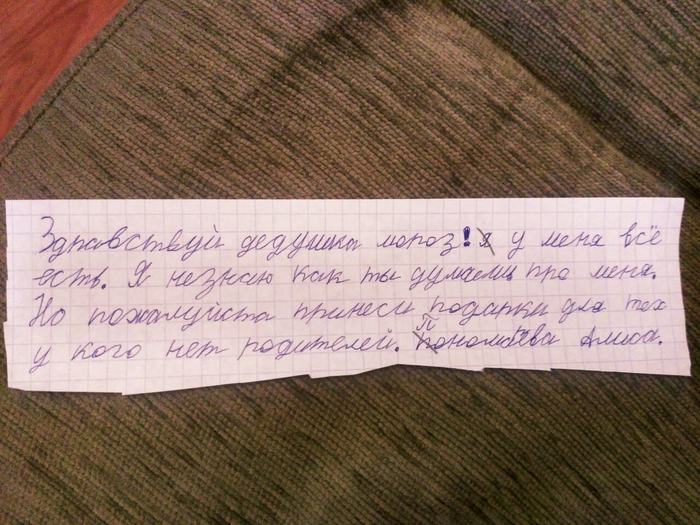 Здравствуй дедушка мороз! я у меня всё
есть. Я незнаю как ты думаешь про меня.
Но пожалуйста принеси подарки для тех
у кого нет родителей. Алиса.